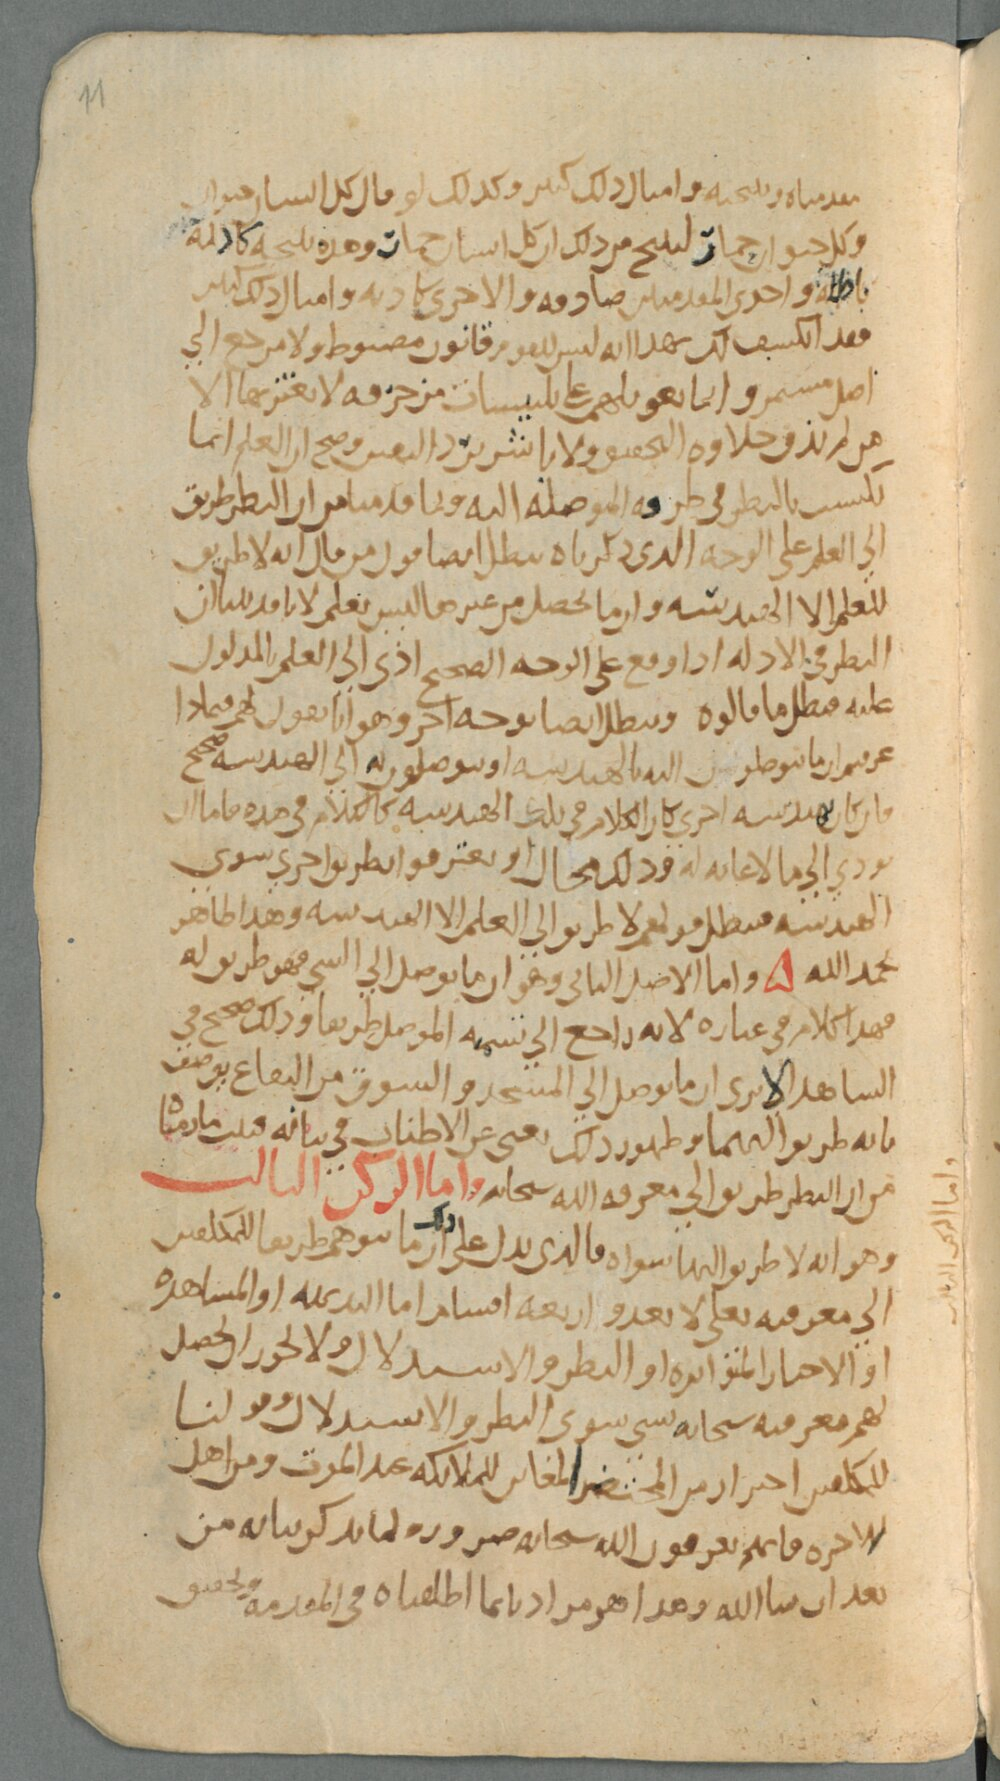 11
مقدمتاه ونتيجته وامثال ذلك كثير وكذلك لو قال كل انسان حيوان
وكل حيوان حمار لينتج من ذلك ان كل انسان حمار وهذه نتيجة كاذبة
باطلة واحدى المقدمتين صادقه والاخرى كاذبه وامثال ذلك كثير
فقد انكشف لك بهذا انه ليس للقوم قانون مضبوط ولا مرجع الى
اصل مستمر وانما تعويلهم على تلبيسات مزخرفه لا يغتر بها الا
من لم يذق حلاوه التحقيق ولا باشر برد اليقين وصح ان العلم انما
يكتسب بالنظر في طرقه الموصله اليه وبما قدمنا من ان النظر طريق
الى العلم على الوجه الذي ذكرناه يبطل ايضا قول من قال انه لا طريق
للعلم الا الهندسه وان ما يحصل من غيرها ليس بعلم لانا قد بينا ان
النظر في الادله اذا وقع على الوجه الصحيح ادى الى العلم بالمدلول
عليه فبطل ما قالوه ويبطل ايضا بوجه اخر وهو انا نقول لهم فبماذا
عرفتم ان ما يتوصلون اليه بالهندسه او يتوصلون به الى الهندسه صحيح
فان كان بهندسه اخرى كان الكلام في تلك الهندسه كالكلام في هذه فاما ان
يودي الى ما لا غايه له وذلك محال او يعترفوا بطريق اخرى سوى
الهندسه فيبطل قولهم لا طريق الى العلم الا الهندسه وهذا ظاهر
بحمد الله ه واما الاصل الثاني وهو ان ما يوصل الى الشي فهو طريق له
فهذا كلام في عباره لانه راجع الى تسميه الموصل طريقا وذلك صحيح في
الشاهد الا ترى ان ما يوصل الى المسجد والسوق من البقاع يوصف
بانه طريق اليهما وظهور ذلك يغني عن الاطناب في بيانه فثبت ما رمناه
من ان النظر طريق الى معرفه الله سبحانه واما الركن الثالث
وهو انه لا طريق اليها سواه فالذي يدل على ذلك ان ما يتوهم طريقا للمكلفين
الى معرفته تعالى لا يعدو اربعه اقسام اما البديهه او المشاهده
او الاخبار المتواتره او النظر والاستدلال ولا يجوز ان يحصل
لهم معرفته سبحانه بشي سوى النظر والاستدلال وقولنا
للمكلفين احتراز من المحتضر المعاين للملائكه عند الموت ومن اهل
الاخره فانهم يعرفون الله سبحانه ضروره لما نذكر بيانه من
بعد ان شا الله وهذا هو مرادنا بما اطلقناه في المقدمه وتحقيق
واما الركن الثالث